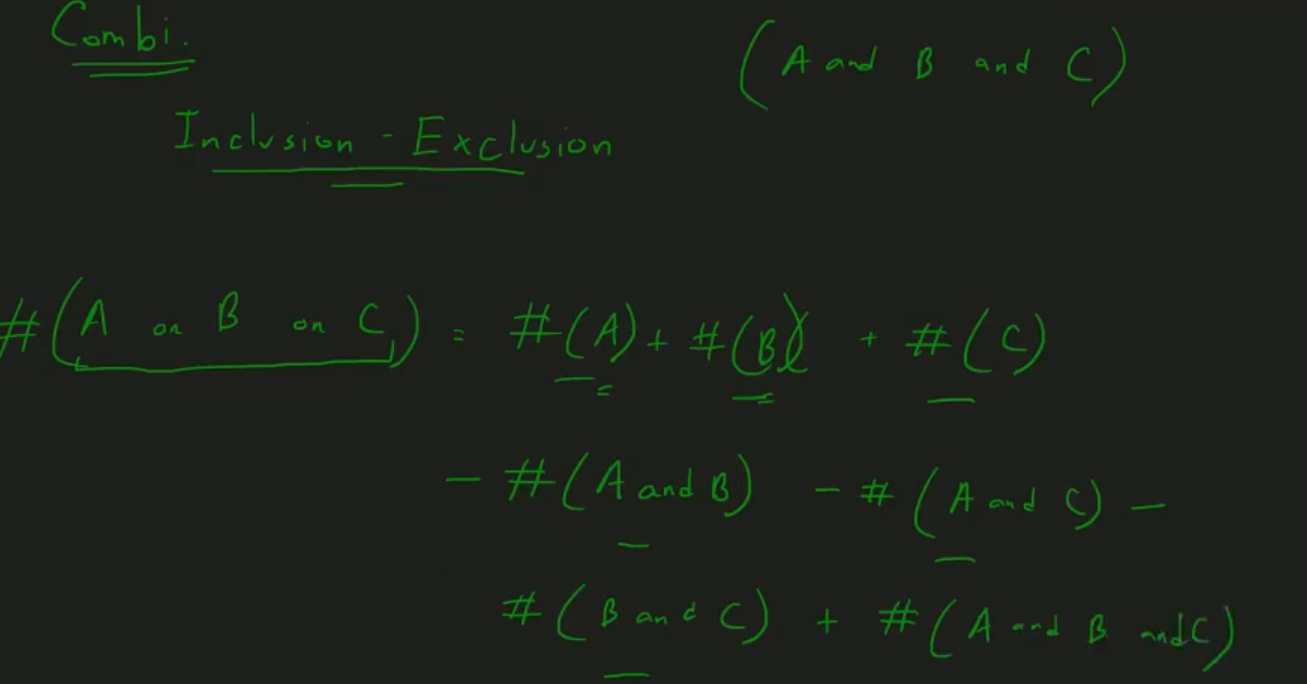 Combi.
(A and B and C)
Inclusion - Exclusion
#(A or B or C) = #(A) + #(B) + #(C)
- #(A and B) - #(A and C) -
#(B and C) + #(A and B and C)